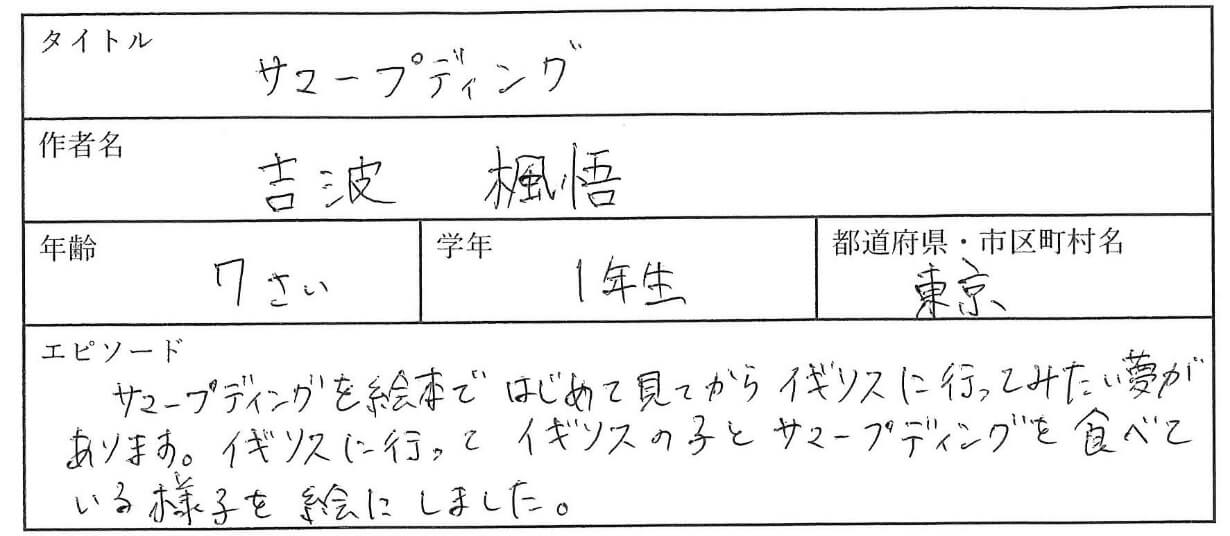 タイトル
サマープディング
作者名
吉波 楓悟
年齢
7さい
学年
1年生
都道府県・市区町村名
東京
エピソード
サマープディングを絵本ではじめて見てからイギリスに行ってみたい夢が
あります。イギリスに行って イギリスの子とサマープディングを食べて
いる様子を絵にしました。